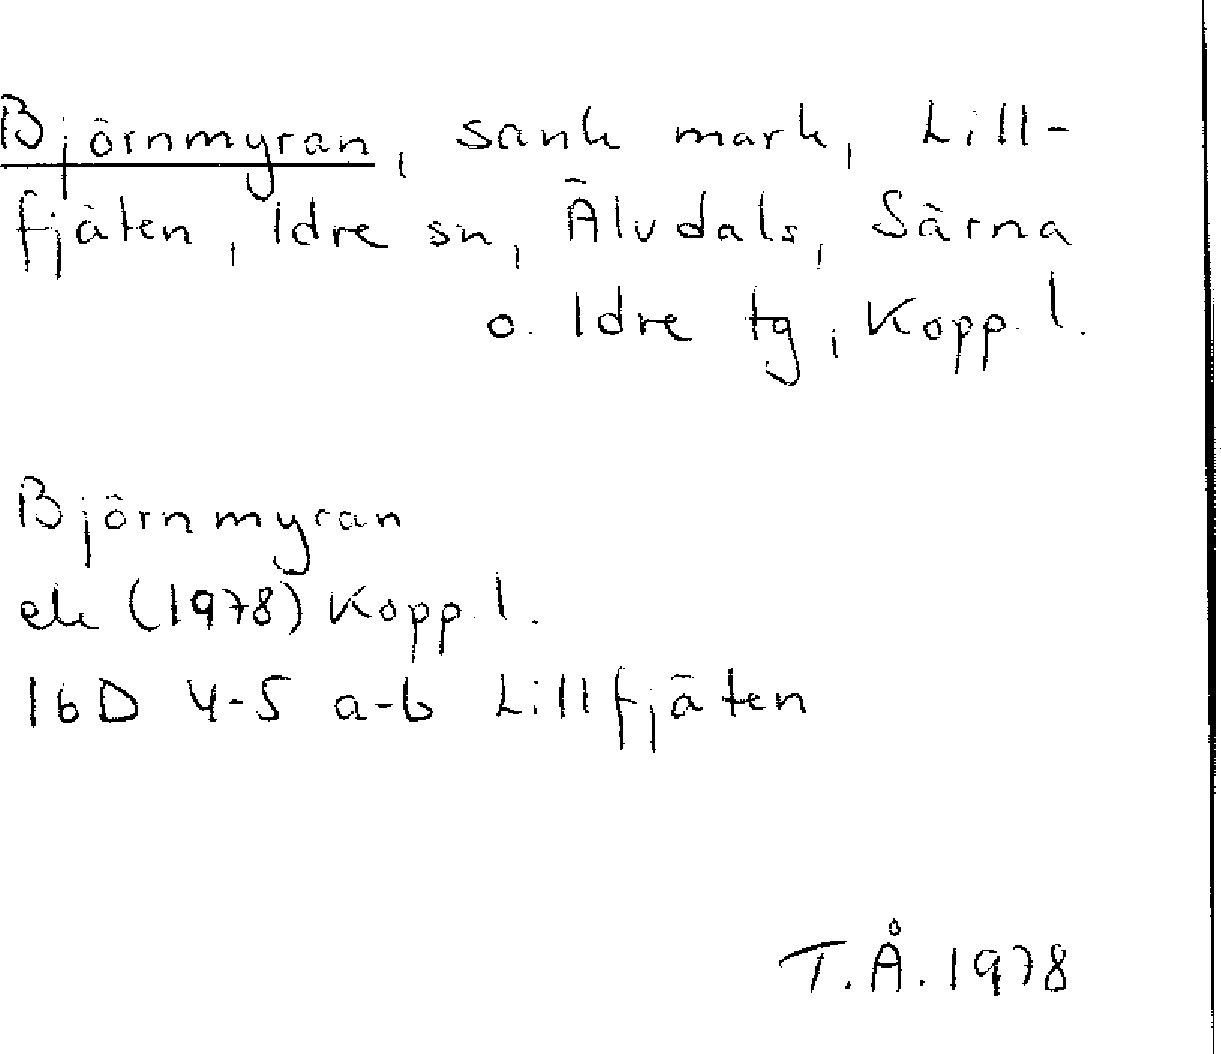 Björnmyran, sank mark, Lill-
fjäten, Idre sn, Älvdals, Särna
o. Idre tg, Kopp. l.
Björnmyran
ek (1978) Kopp. l.
16D 4-5 a-b Lillfjäten
T.Å. 1978